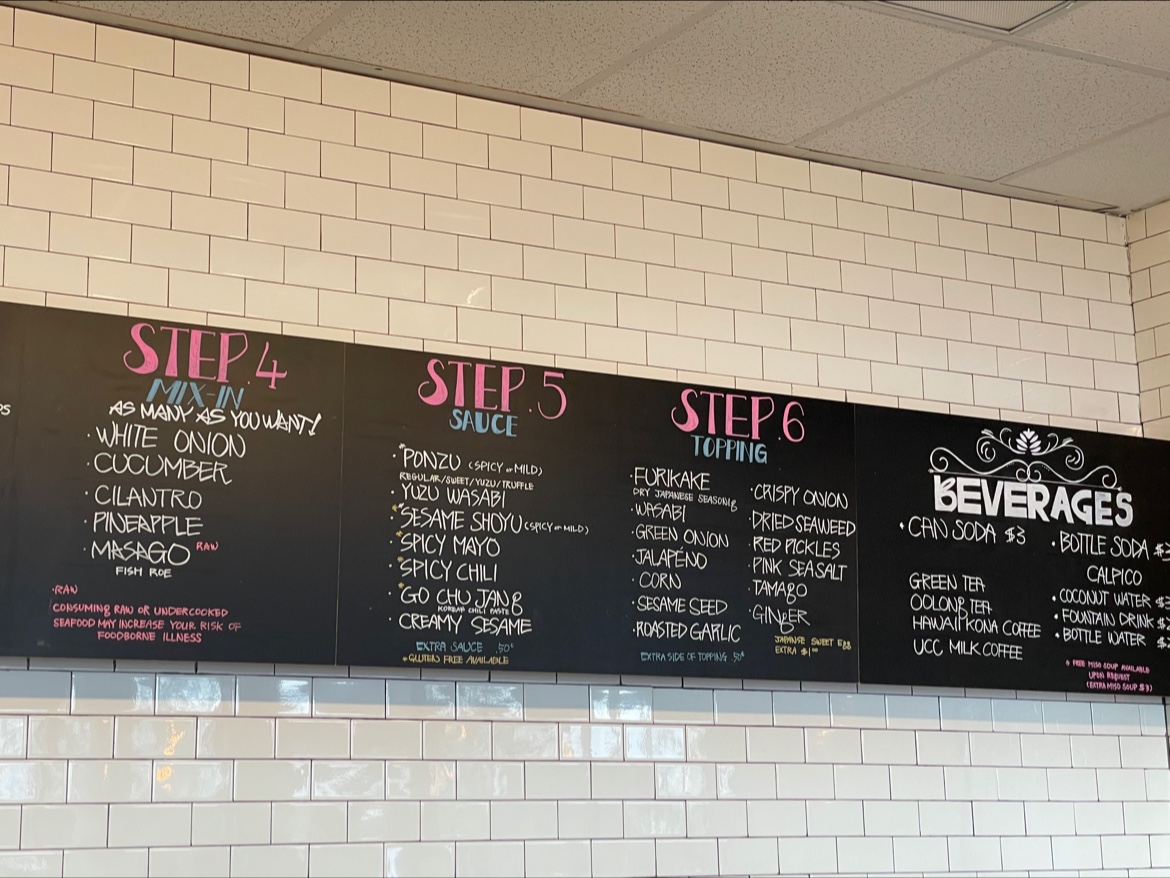 STEP.4
MIX-IN
AS MANY AS YOU WANT!
·WHITE ONION
·CUCUMBER
·CILANTRO
·PINEAPPLE
·MASAGO RAW
FISH ROE
·RAW
CONSUMING RAW OR UNDERCOOKED
SEAFOOD MAY INCREASE YOUR RISK OF
FOODBORNE ILLNESS
STEP.5
SAUCE
·*PONZU (SPICY or MILD)
REGULAR/SWEET/YUZU/TRUFFLE
·YUZU WASABI
·*SESAME SHOYU (SPICY or MILD)
·*SPICY MAYO
·SPICY CHILI
·*GO CHU JANG
KOREAN CHILI PASTE
·CREAMY SESAME
EXTRA SAUCE .50¢
*GLUTEN FREE AVAILABLE
STEP.6
TOPPING
·FURIKAKE
DRY JAPANESE SEASONING
·WASABI
·GREEN ONION
·JALAPÉNO
·CORN
·SESAME SEED
·ROASTED GARLIC
EXTRA SIDE OF TOPPING .50¢
·CRISPY ONION
·DRIED SEAWEED
·RED PICKLES
·PINK SEASALT
·TAMAGO
·GINGER
JAPANSE SWEET EGG
EXTRA $1⁰⁰
BEVERAGES
·CAN SODA $3
GREEN TEA
OOLONG TEA
HAWAII KONA COFFEE
UCC MILK COFFEE
·BOTTLE SODA
CALPICO
·COCONUT WATER
·FOUNTAIN DRINK
·BOTTLE WATER
* FREE MISO SOUP AVAILABLE
UPON REQUEST
(EXTRA MISO SOUP $3)